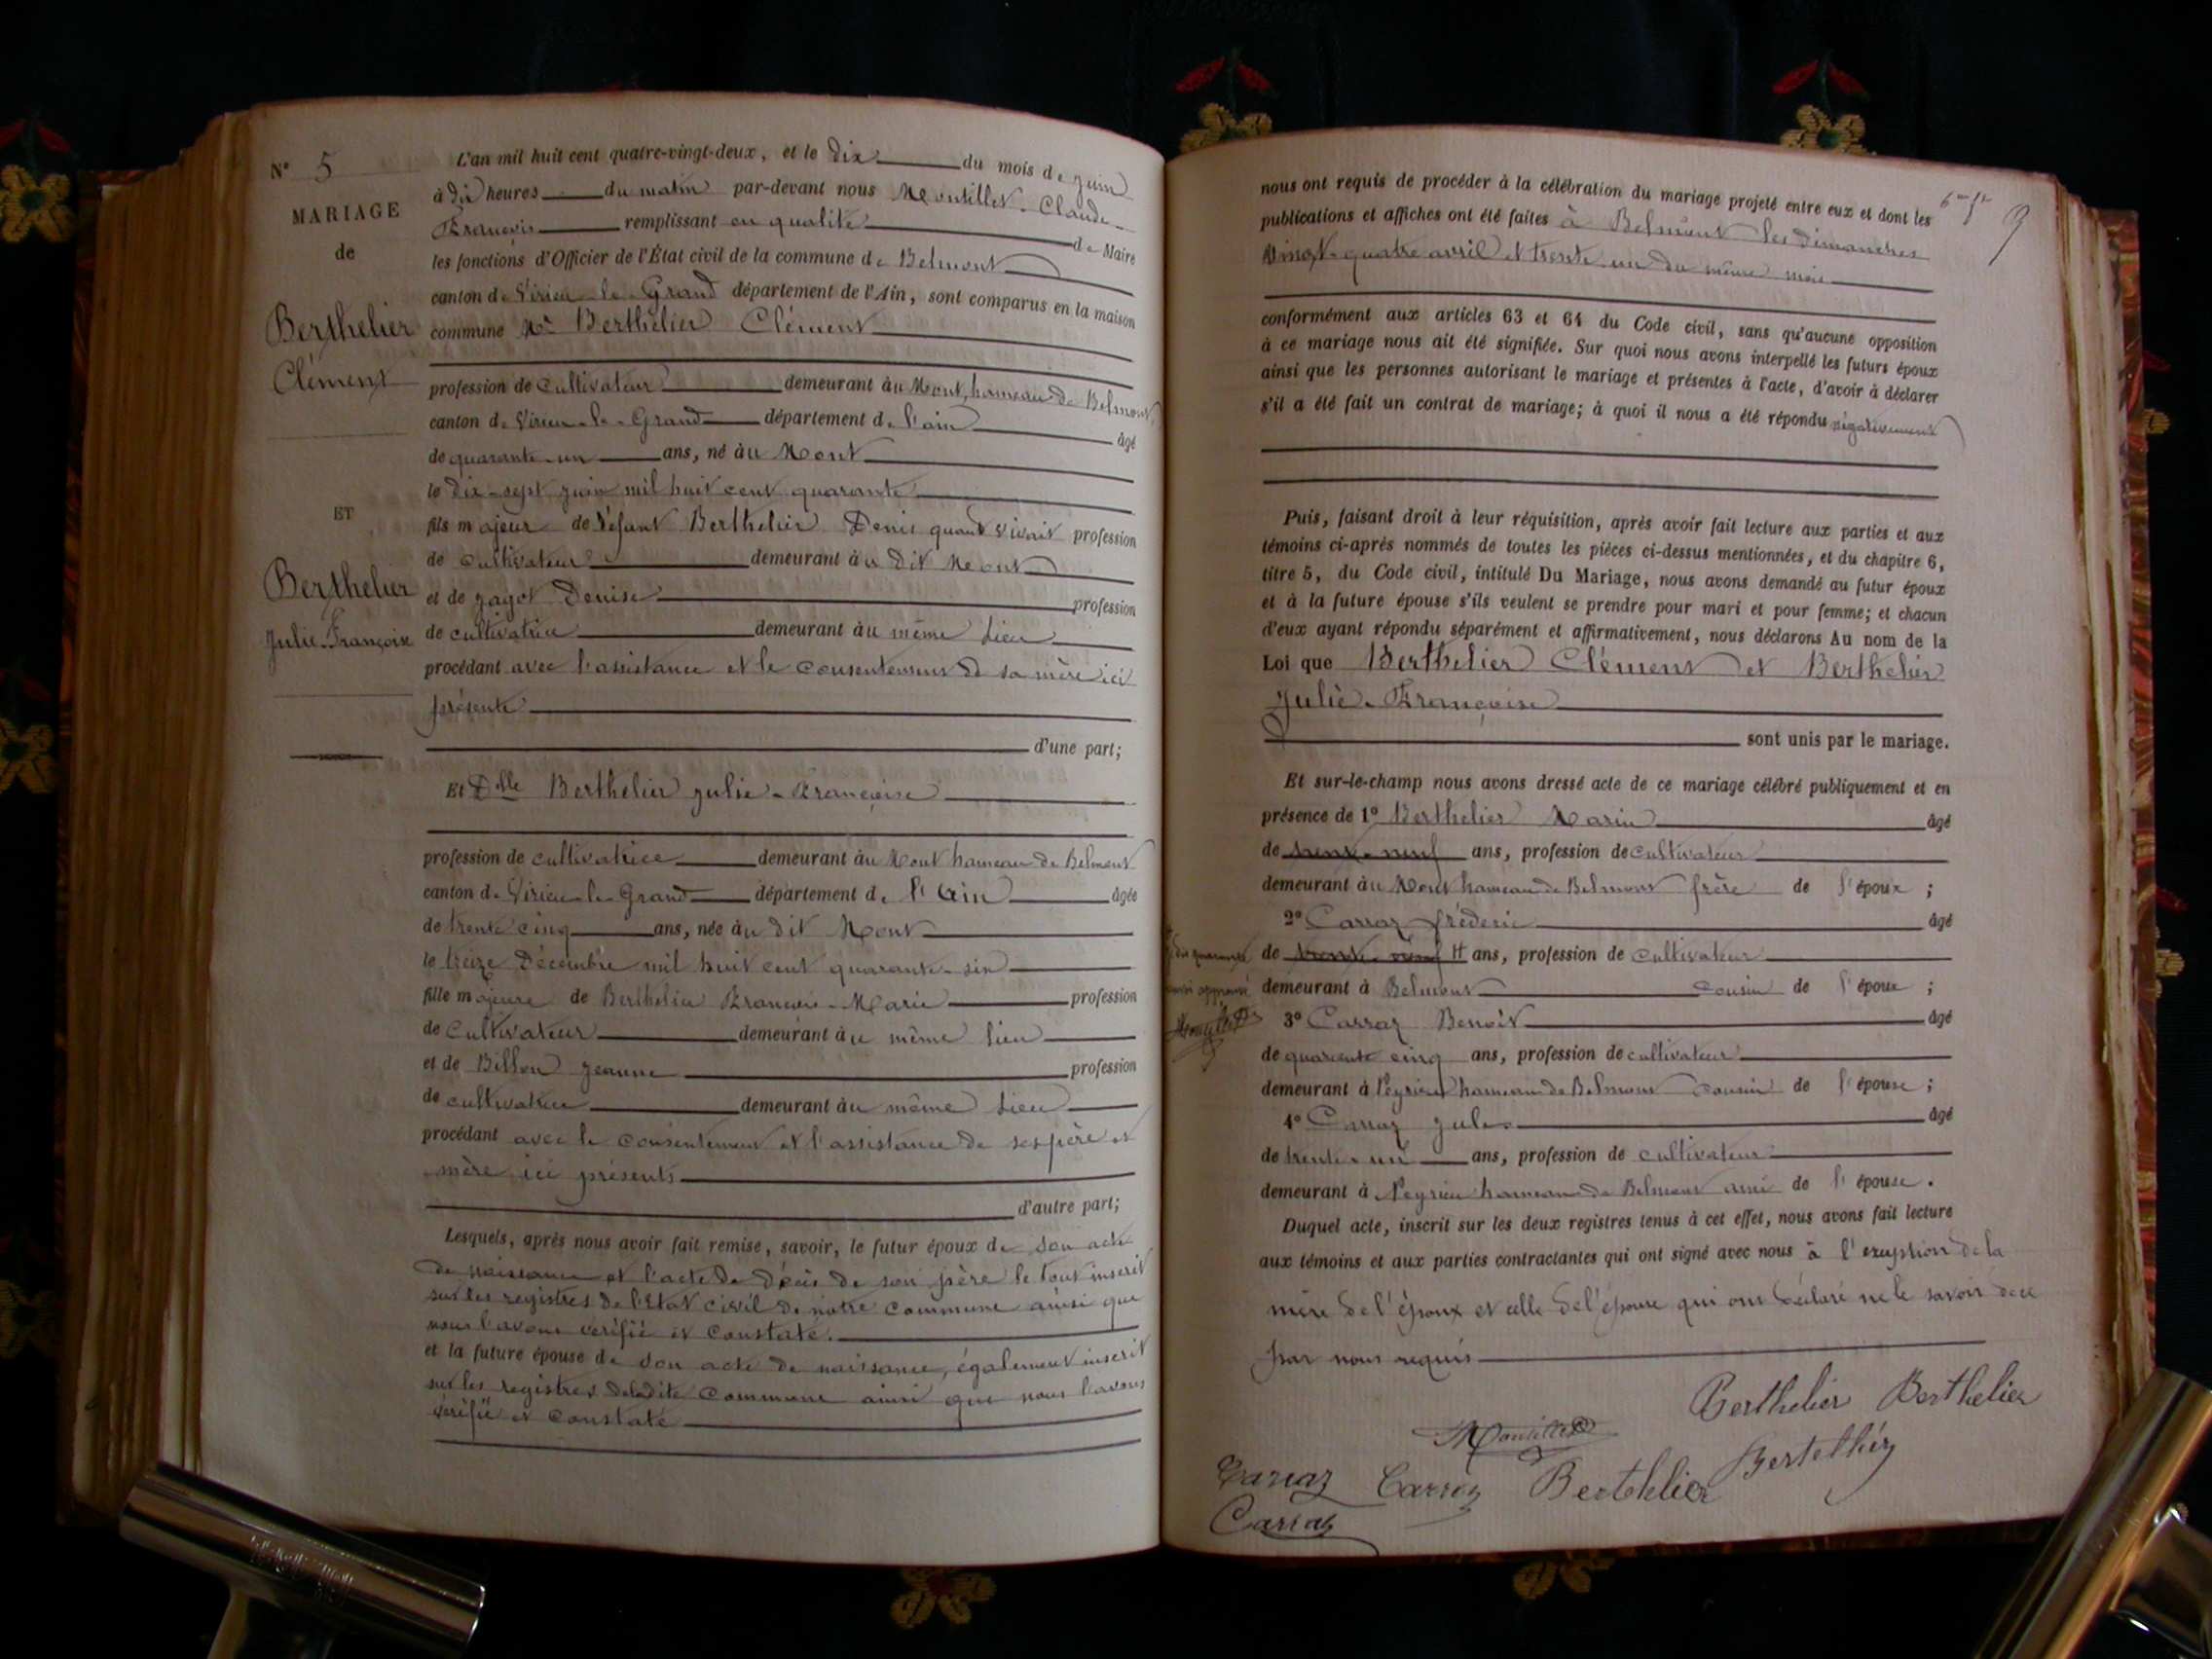 N° 5
MARIAGE
de
Berthelier
Clément
ET
Berthelier
Julie-Françoise
L'an mil huit cent quatre-vingt-deux, et le dix du mois de juin
à dix heures du matin par-devant nous Montillet Claude-
François remplissant en qualité de Maire
les fonctions d'Officier de l'État civil de la commune de Belmont
canton de Virieu-le-Grand département de l'Ain, sont comparus en la maison
commune Mr Berthelier Clément
profession de Cultivateur demeurant au Mont, hameau de Belmont
canton de Virieu-le-Grand département de l'ain âgé
de quarante-un ans, né au Mont
le dix-sept juin mil huit cent quarante
fils majeur de défunt Berthelier Denis quand vivait profession
de cultivateur demeurant au dit Mont
et de jagot Denise profession
de cultivatrice demeurant au même lieu
procédant avec l'assistance et le consentement de sa mère ici
présente
d'une part;
Et Delle Berthelier julie-Françoise
profession de cultivatrice demeurant au Mont hameau de Belmont
canton de Virieu-le-Grand département de l'Ain âgée
de trente cinq ans, née au dit Mont
le treize Décembre mil huit cent quarante-six
fille majeure de Berthelier François-Marie profession
de Cultivateur demeurant au même lieu
et de Billon jeanne profession
de cultivatrice demeurant au même lieu
procédant avec le consentement et l'assistance de ses père et
mère ici présents
d'autre part;
Lesquels, après nous avoir fait remise, savoir, le futur époux de son acte
de naissance et l'acte de décès de son père le tout inscrit
sur les registres de l'Etat civil de notre commune ainsi que
nous l'avons vérifié et constaté.
et la future épouse de son acte de naissance, également inscrit
sur les registres de ladite commune ainsi que nous l'avons
vérifié et constaté
nous ont requis de procéder à la célébration du mariage projeté entre eux et dont les
publications et affiches ont été faites à Belmont les dimanches
vingt-quatre avril et trente-un du même mois
conformément aux articles 63 et 64 du Code civil, sans qu'aucune opposition
à ce mariage nous ait été signifiée. Sur quoi nous avons interpellé les futurs époux
ainsi que les personnes autorisant le mariage et présentes à l'acte, d'avoir à déclarer
s'il a été fait un contrat de mariage; à quoi il nous a été répondu négativement
Puis, faisant droit à leur réquisition, après avoir fait lecture aux parties et aux
témoins ci-après nommés de toutes les pièces ci-dessus mentionnées, et du chapitre 6,
titre 5, du Code civil, intitulé Du Mariage, nous avons demandé au futur époux
et à la future épouse s'ils veulent se prendre pour mari et pour femme; et chacun
d'eux ayant répondu séparément et affirmativement, nous déclarons Au nom de la
Loi que Berthelier Clément et Berthelier
Julie-Françoise
sont unis par le mariage.
Et sur-le-champ nous avons dressé acte de ce mariage célébré publiquement et en
présence de 1° Berthelier Marin âgé
de trente-neuf ans, profession de cultivateur
demeurant au Mont hameau de Belmont frère de l'époux;
2° Carraz fréderic âgé
de trente-neuf ans, profession de cultivateur
demeurant à Belmont cousin de l'époux;
3° Carraz Benoît âgé
de quarante cinq ans, profession de cultivateur
demeurant à Peyrieu hameau de Belmont cousin de l'épouse;
4° Carraz jules âgé
de trente-un ans, profession de cultivateur
demeurant à Peyrieu hameau de Belmont ami de l'épouse.
Duquel acte, inscrit sur les deux registres tenus à cet effet, nous avons fait lecture
aux témoins et aux parties contractantes qui ont signé avec nous à l'exception de la
mère de l'époux et celle de l'épouse qui ont déclaré ne le savoir de ce
par nous requis
Berthelier Berthelier
Montillet
Bertelhier
Carraz Carraz Berthelier
Carraz